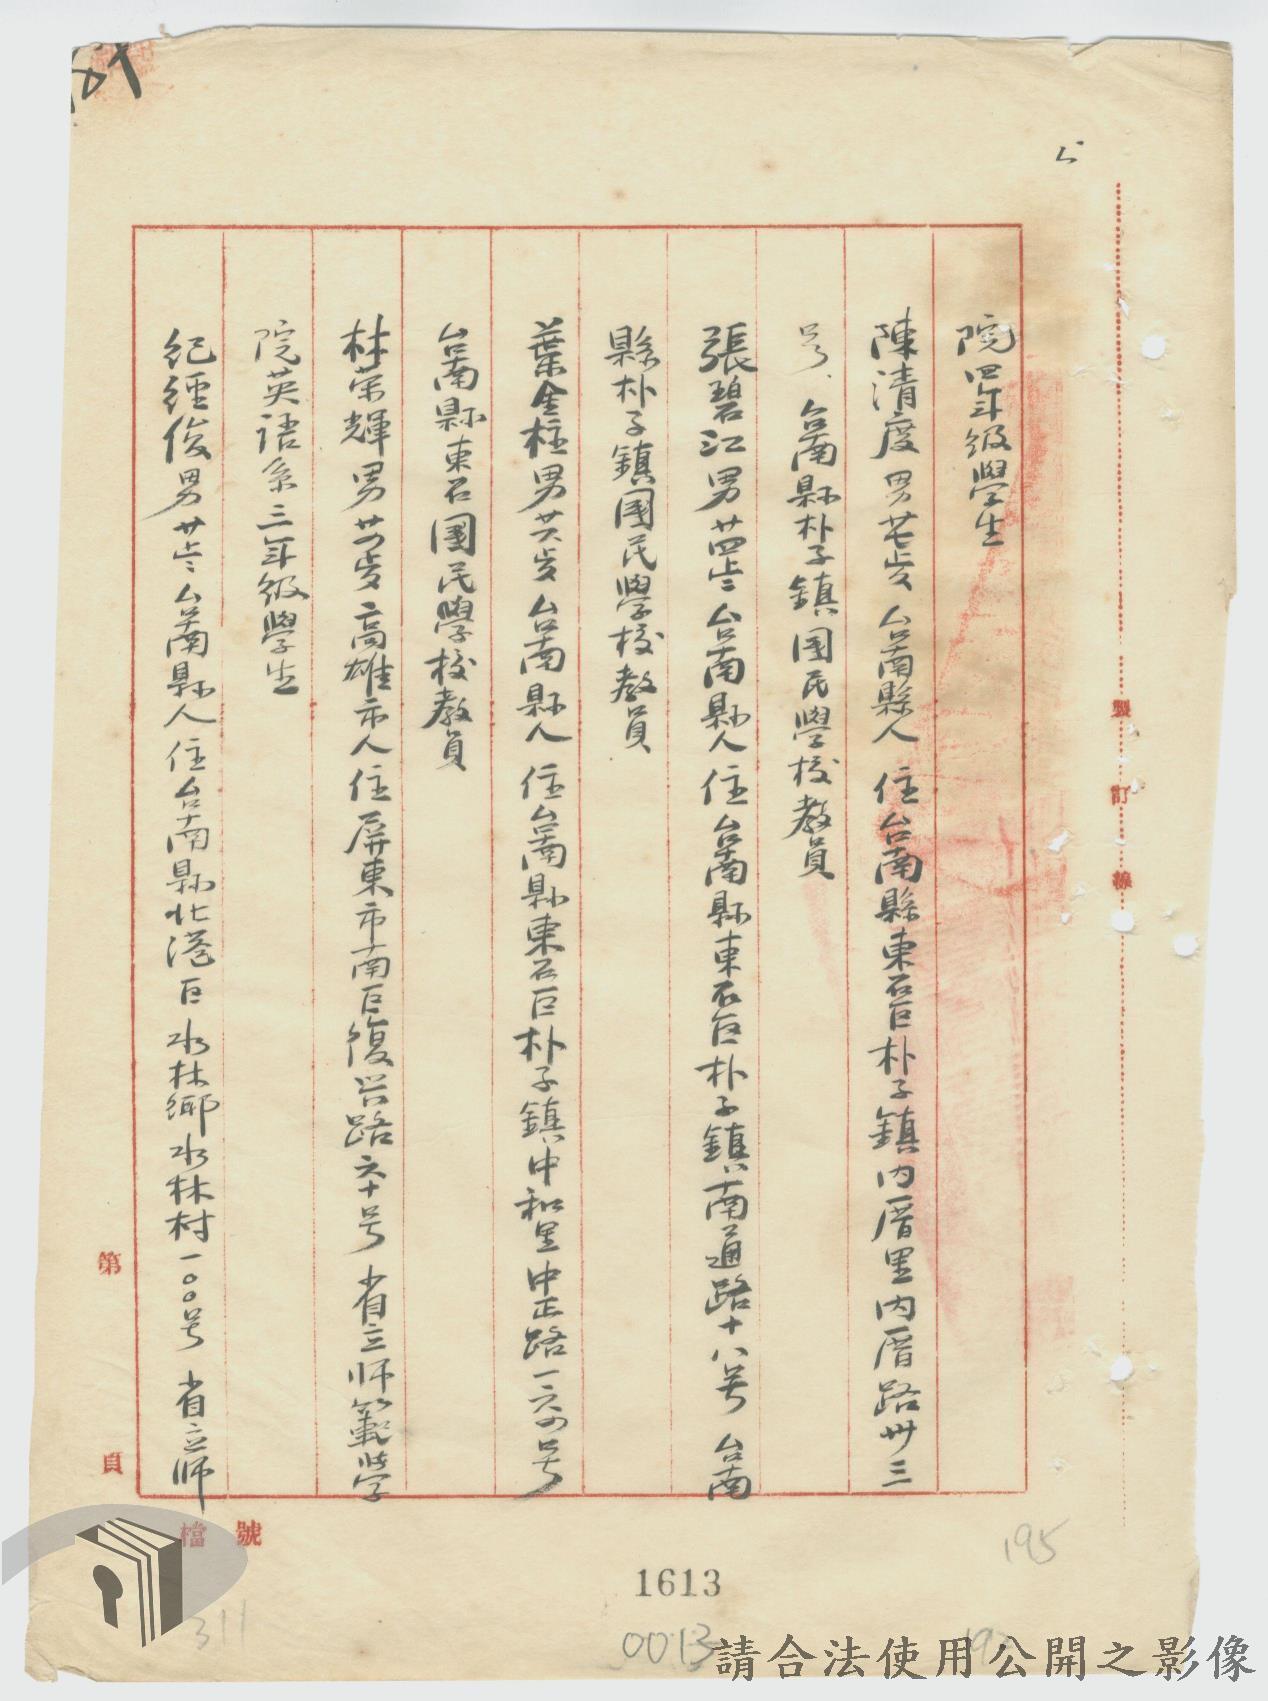 院四年級學生
陳清度男廿七歲台南縣人住台南縣東石区朴子鎮內厝里內厝路卅三
号、台南縣朴子鎮国民學校教員
張碧江男廿四歲台南縣人住台南縣東石区朴子鎮南通路十八号台南
縣朴子鎮国民學校教員
葉金柱男廿六歲台南縣人住台南縣東石区朴子鎮中和里中正路一六四号
台南縣東石國民學校教員
林荣輝男廿四歲高雄市人住屏東市南区復兴路六十号省立师範學
院英語系三年級學生
纪經俊男廿歲台南縣人住台南縣北港区水林鄉水林村一〇〇号省立师
裝訂線
第 頁
檔 號
195
1613
311
0013
請合法使用公開之影像